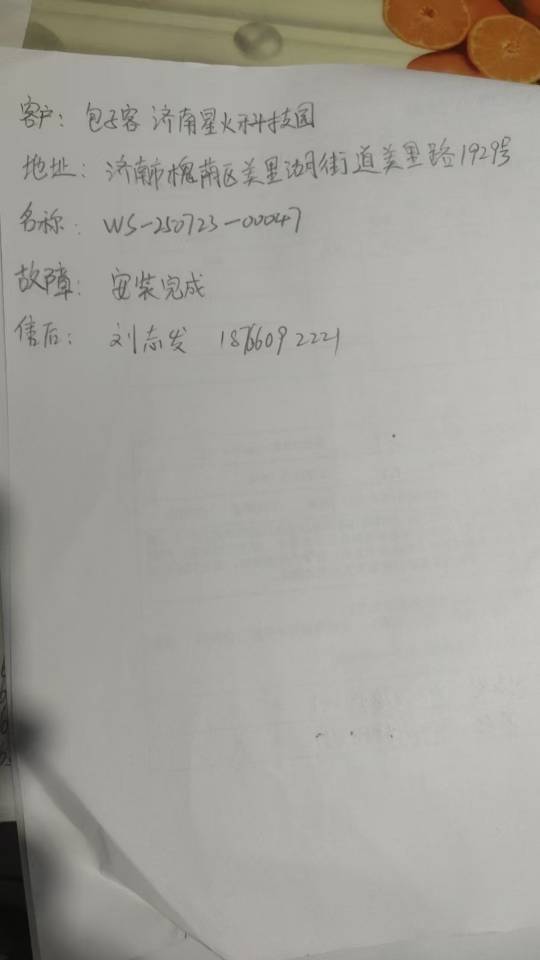 客户：包子客 济南星火科技园
地址：济南市槐荫区美里湖街道美里路1929号
名称：WS-250723-00047
故障：安装完成
售后：刘志发 18766092221